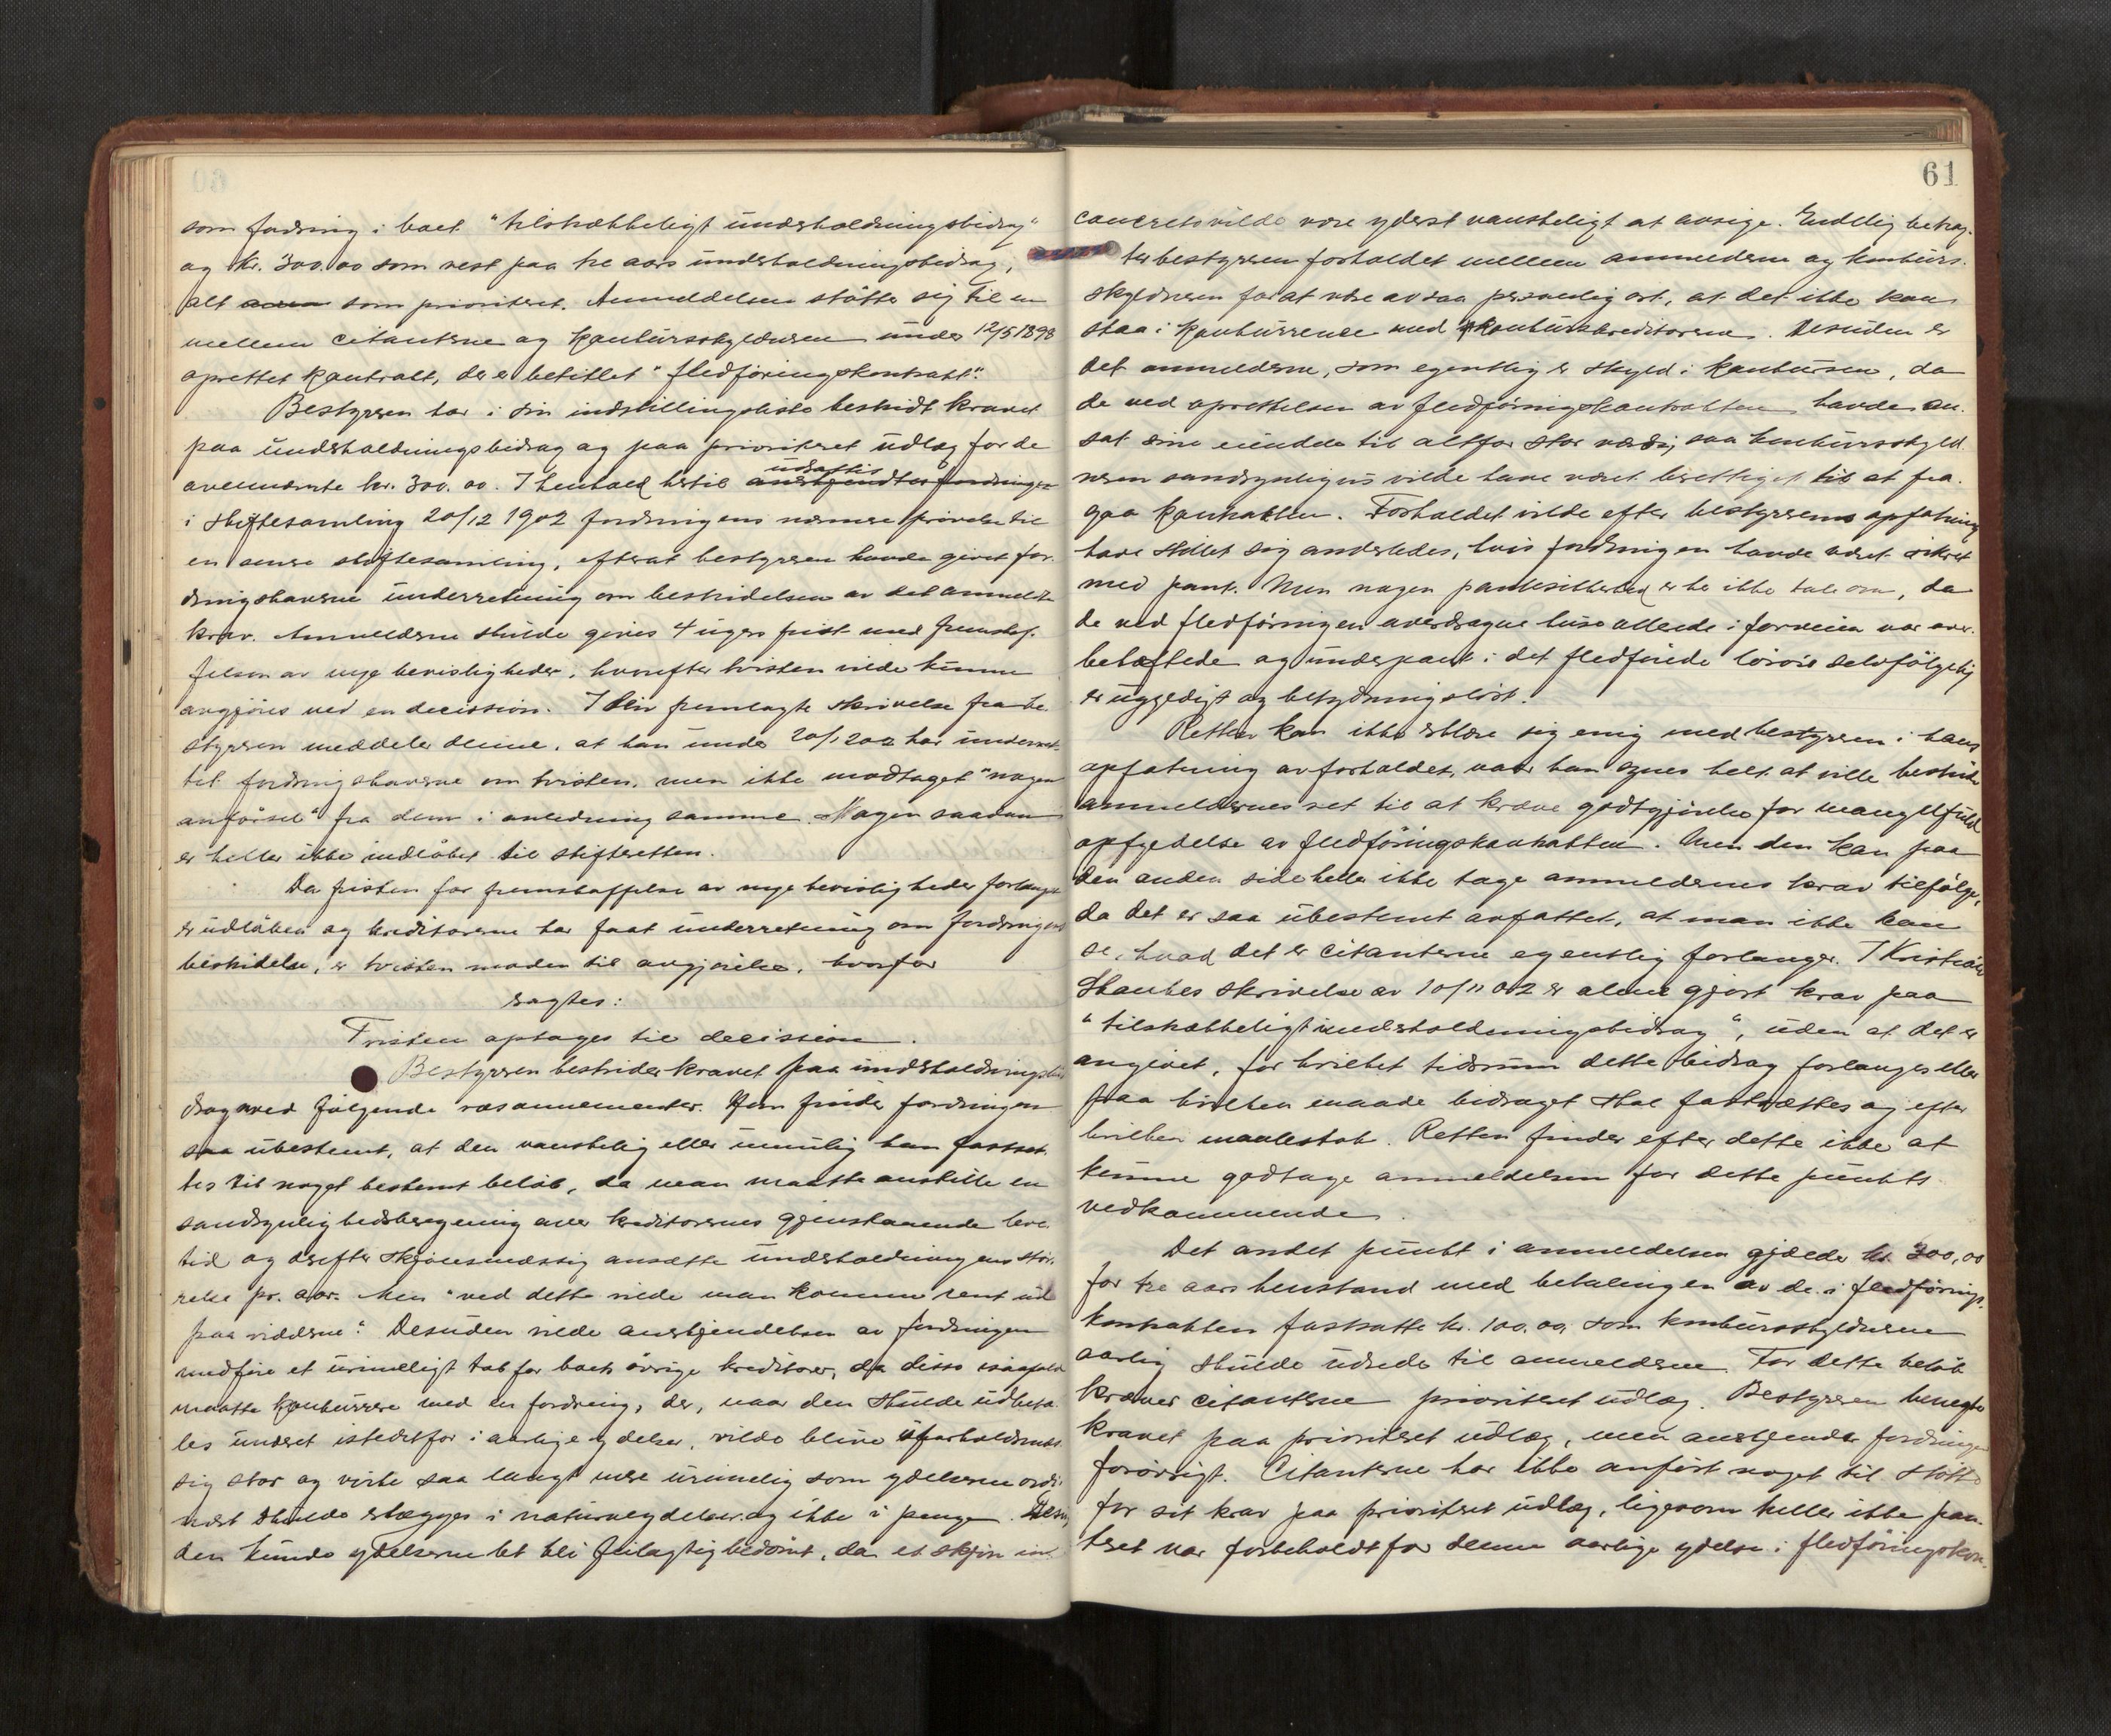 som fordring i boet "tilstrækkeligt underholdningsbidrag"
og Kr. 300.00 som rest paa tre aars underholdningsbidrag,
alt som prioritert. Anmeldelsen støtter sig til en
mellem citanterne og konkursskyldneren under 12/5 1898
oprettet kontrakt, der er betitlet "fledføringskontrakt".
Bestyreren har i sin indstillingsliste bestridt kravet
paa underholdningsbidrag og paa prioritert udlæg for de
ovennævnte kr. 300.00. I henhold hertil udsattes
i skiftesamling 20/12 1902 fordringens nærmere prøvelse til
en senere skiftesamling, efterat bestyreren havde givet for-
dringshaverne underretning om bestridelsen av det anmeldte
krav. Anmelderne skulde gives 4 ugers frist med fremskaf-
felsen av nye bevisligheder, hvorefter tvisten vilde kunne
avgjøres ved en decission. I den fremlagte skrivelse fra be-
styreren meddeler denne, at han under 20/12 02 har underret-
tet fordringshaverne om tvisten, men ikke modtaget "nogen
anførsel" fra dem i anledning samme. Nogen saadan
er heller ikke indløbet til skifteretten.
Da fristen for fremskaffelse av nye bevisligheder forlængst
er udløben og kreditorerne har faat underretning om fordringens
bestridelse, er tvisten moden til avgjørelse, hvorfor
sagtes:
Tvisten optages til decission.
Bestyreren bestrider kravet paa underholdningsbi-
drag med følgende ræsonnementer. Han finder fordringen
saa ubestemt, at den vanskelig eller umulig kan fastsæt-
tes til noget bestemt beløb, da man maatte anstille en
sandsynlighedsberegning over kreditorernes gjenstaaende leve-
tid og derefter skjønsmæssig ansætte underholdningens stør-
relse pr. aar. Men "ved dette vilde man komme rent ud
paa vidderne". Desuden vilde anerkjendelsen av fordringen
medføre et urimeligt tab for boets øvrige kreditorer, da disse isaafald
maatte konkurrere med en fordring, der, naar den skulde udbeta-
les underet istedetfor i aarlige ydelser, vilde blive uforholdsmæs-
sig stor og virke saa langt mere urimelig som ydelserne ordi-
nært skulde erlægges i naturalydelser og ikke i penge. Desu-
den kunde ydelserne let bli feilagtig bedømt, da et skjøn in
61
concreto vilde være yderst vanskeligt at avsige. Endelig betrag-
ter bestyreren forholdet mellem anmelderne og konkurs-
skyldneren for at være av saa personlig art, at det ikke kan
staa i konkurrence med konkurskreditorerne. Desuden er
det anmelderne, som egentlig er skyld i konkursen, da
de ved oprettelsen av fledføringskontrakten havde an-
sat sine eiendele til altfor stor værdi, saa konkursskyld-
neren sandsynligvis vilde have været berettiget til at fra-
gaa kontrakten. Forholdet vilde efter bestyrerens opfatning
have stillet sig anderledes, hvis fordringen havde været sikret
med pant. Men nogen pantesikkerhed er her ikke tale om, da
de ved fledføringen overdragne huse allerede i forveien var over-
behæftede og underpant i det fledførede løsøre selvfølgelig
er ugyldigt og betydningsløst.
Retten kan ikke erklære sig enig med bestyreren i hans
opfatning av forholdet, naar han synes helt at ville bestride
anmeldernes ret til at kræve godtgjørelse for mangelfuld
opfyldelse av fledføringskontrakten. Men den kan paa
den anden side heller ikke tage anmeldernes krav tilfølge,
da det er saa ubestemt avfattet, at man ikke kan
se, hvad det er citanterne egentlig forlanger. I Kristian
Skaukes skrivelse av 10/11 02 er alene gjort krav paa
"tilstrækkeligt underholdningsbidrag", uden at det er
angivet, for hvilket tidsrum dette bidrag forlanges eller
paa hvilken maade bidraget skal fastsættes og efter
hvilken maalestok. Retten finder efter dette ikke at
kunne godtage anmeldelsen for dette punkts
vedkommende.
Det andet punkt i anmeldelsen gjælder kr. 300,00
for tre aars henstand med betalingen av de i fledførings-
kontrakten fastsatte kr. 100.00, som konkursskyldneren
aarlig skulde udrede til anmelderne. For dette beløb
kræver citanterne prioritert udlæg. Bestyreren benegter
kravet paa prioritert udlæg, men anerkjender fordringen
forøvrigt. Citanterne har ikke anført noget til støtte
for sit krav paa prioritert udlæg, ligesom heller ikke pan-
teret var forbeholdt for denne aarlige ydelse i fledføringskon-